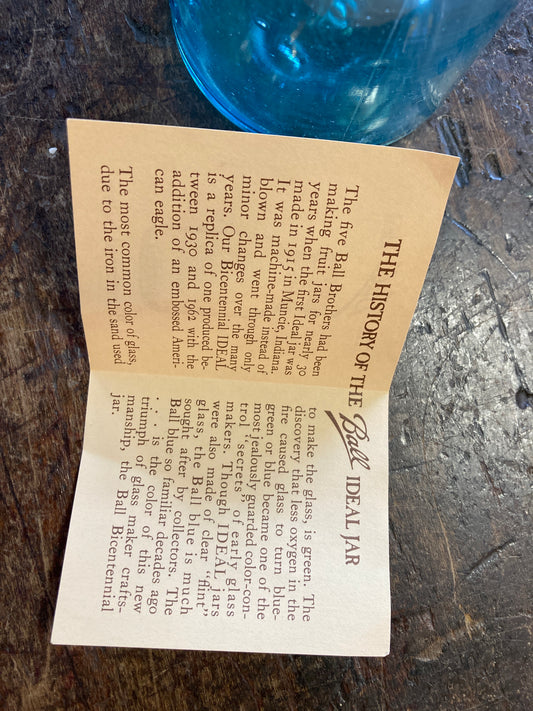 THE HISTORY OF THE Ball IDEAL JAR
The five Ball Brothers had been
making fruit jars for nearly 30
years when the first Ideal jar was
made in 1915 in Muncie, Indiana.
It was machine-made instead of
blown and went through only
minor changes over the many
years. Our Bicentennial IDEAL
is a replica of one produced be-
tween 1930 and 1962 with the
addition of an embossed Ameri-
can eagle.
The most common color of glass,
due to the iron in the sand used
to make the glass, is green. The
discovery that less oxygen in the
fire caused glass to turn blue-
green or blue became one of the
most jealously guarded color-con-
trol "secrets" of early glass
makers. Though IDEAL jars
were also made of clear "flint"
glass, the Ball blue is much
sought after by collectors. The
Ball blue so familiar decades ago
. . . is the color of this new
triumph of glass maker crafts-
manship, the Ball Bicentennial
jar.